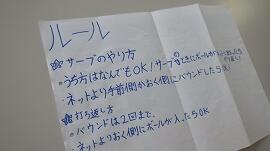 ルール
サーブのやり方
・うち方はなんでもOK!サーブのときにボールが
・ネットより手前側かおく側にバウンドしたら
打ち返し方
・バウンドは2回まで、
・ネットよりおく側にボールが入ったらOK